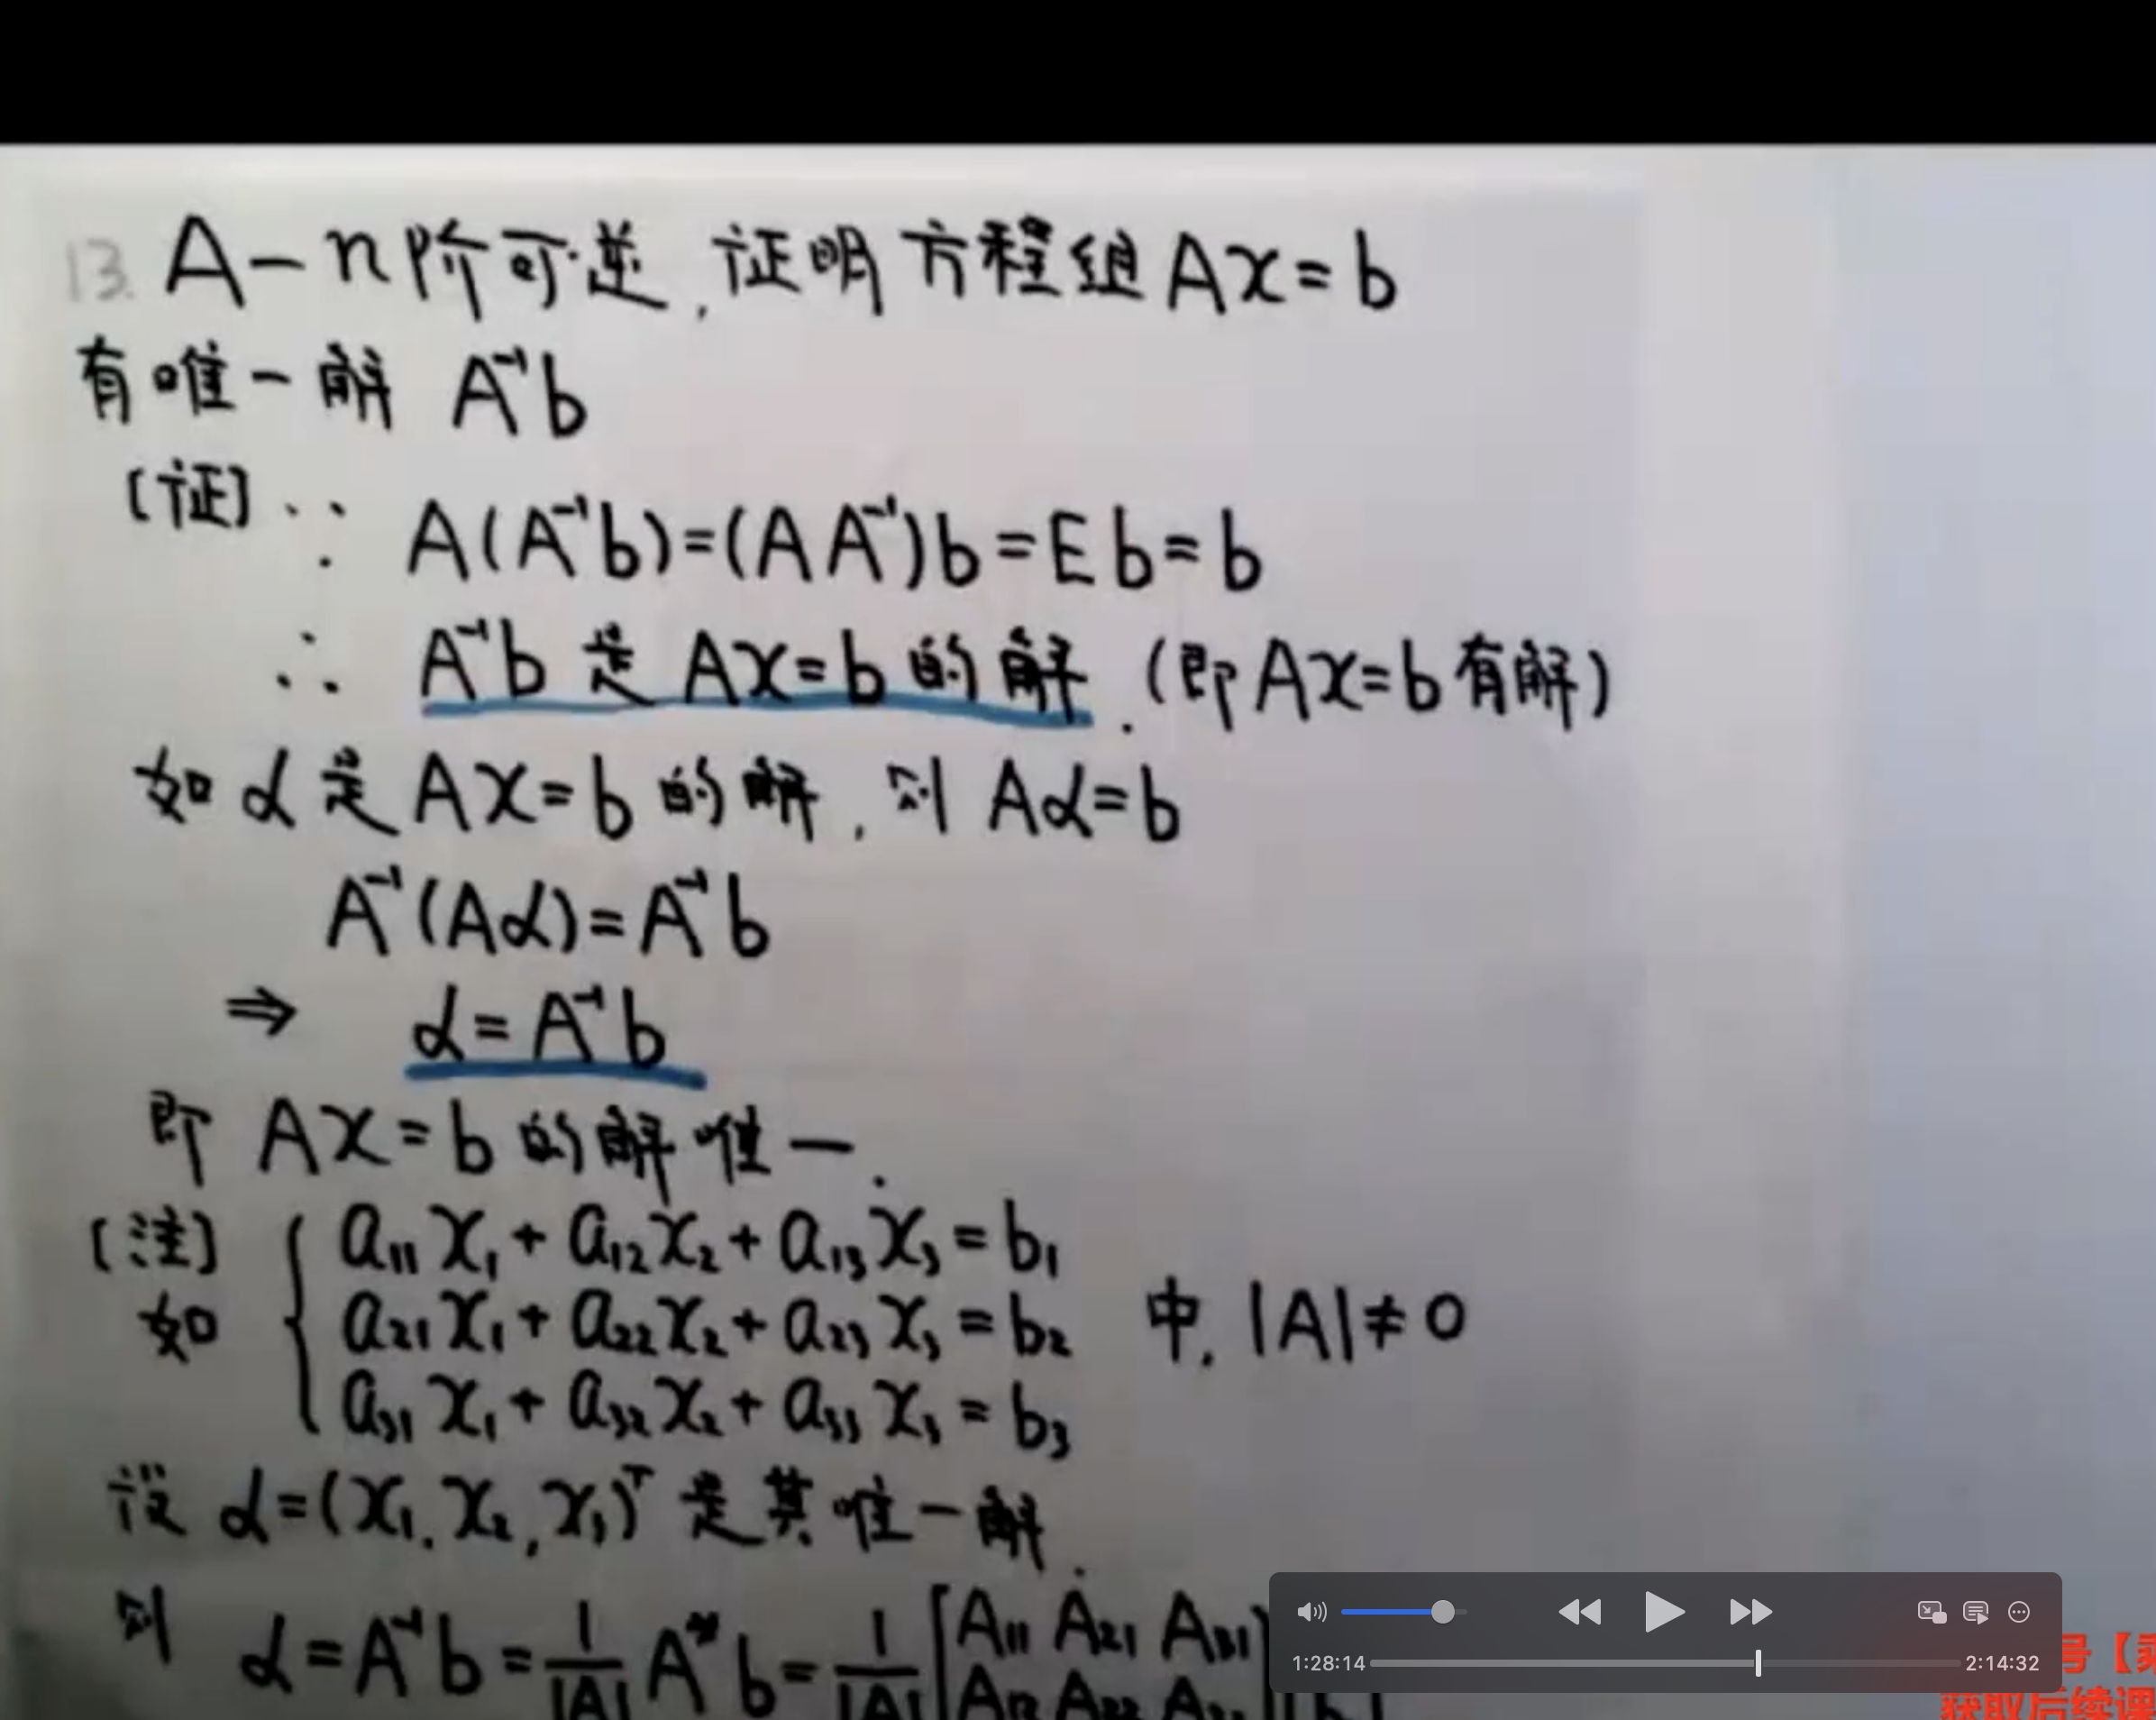 13. A-n阶可逆,证明方程组Ax=b
有唯一解 A⁻¹b
[证] ∵ A(A⁻¹b)=(AA⁻¹)b=Eb=b
∴ A⁻¹b 是 Ax=b 的解.(即Ax=b有解)
如α是Ax=b的解,则Aα=b
A⁻¹(Aα)=A⁻¹b
⇒ α=A⁻¹b
即 Ax=b的解唯一.
[注] a₁₁x₁+a₁₂x₂+a₁₃x₃=b₁
如 { a₂₁x₁+a₂₂x₂+a₂₃x₃=b₂ 中,|A|≠0
a₃₁x₁+a₃₂x₂+a₃₃x₃=b₃
设 α=(x₁,x₂,x₃)ᵀ是其唯一解.
则 α=A⁻¹b=1/|A| A*b=1/|A| [A₁₁ A₂₁ A₃₁
A₁₂ A₂₂
1:28:14 2:14:32
号【
获取后续课